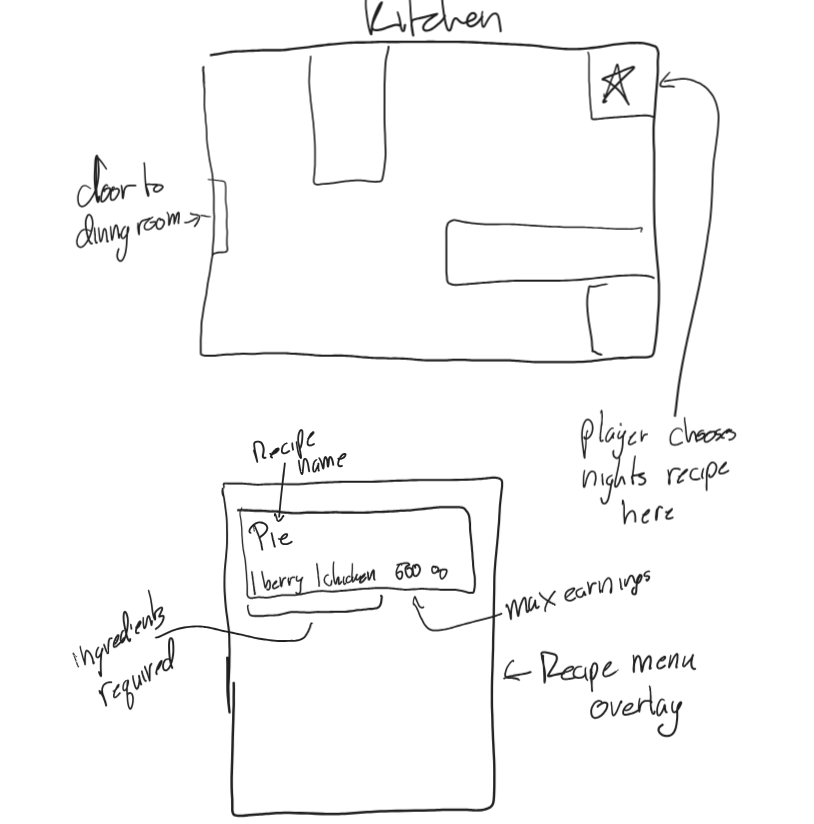 Kitchen
door to
dining room
player chooses
nights recipe
here
Recipe
name
Pie
1 berry 1 chicken 600
max earnings
ingredients
required
Recipe menu
overlay